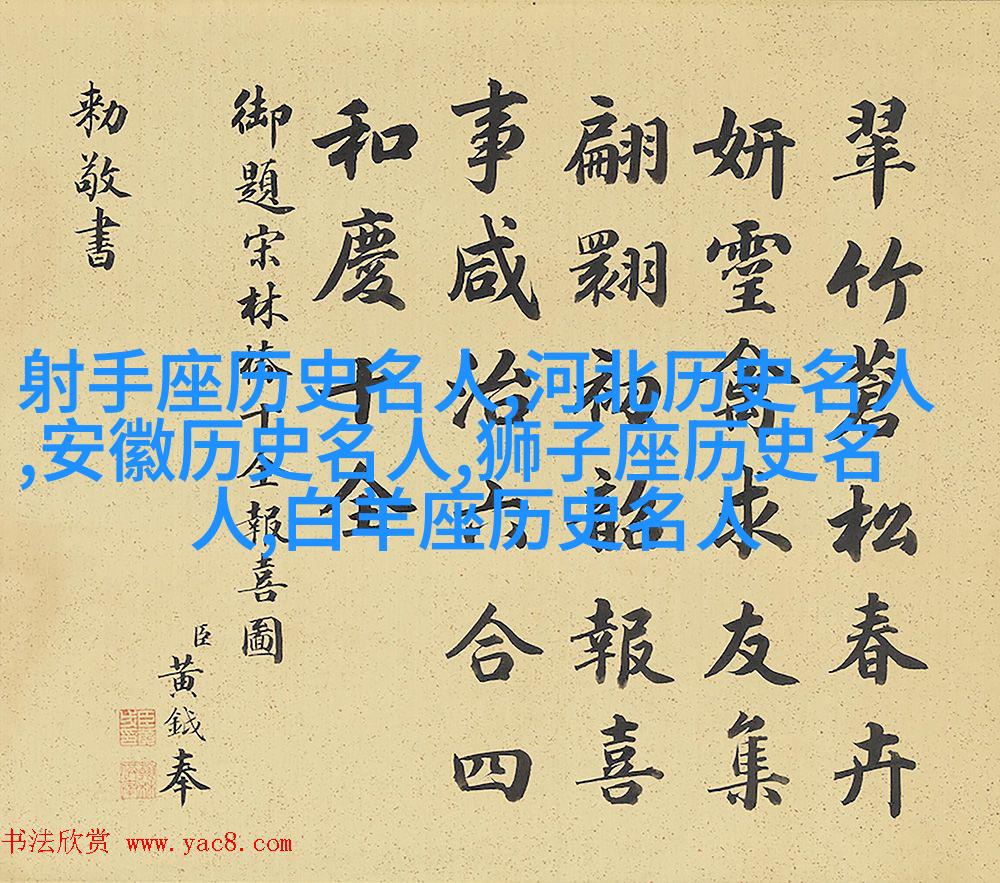 翠竹蒼松春卉
妍靈禽求友集
翩翾初韶報喜
事咸洽六合四
和慶十全
御題宋林椿十全報喜圖
臣黃鉞奉
勅敬書
射手座历史名人,河北历史名人
,安徽历史名人,狮子座历史名
人,白羊座历史名人
书法欣赏 www.yac8.com